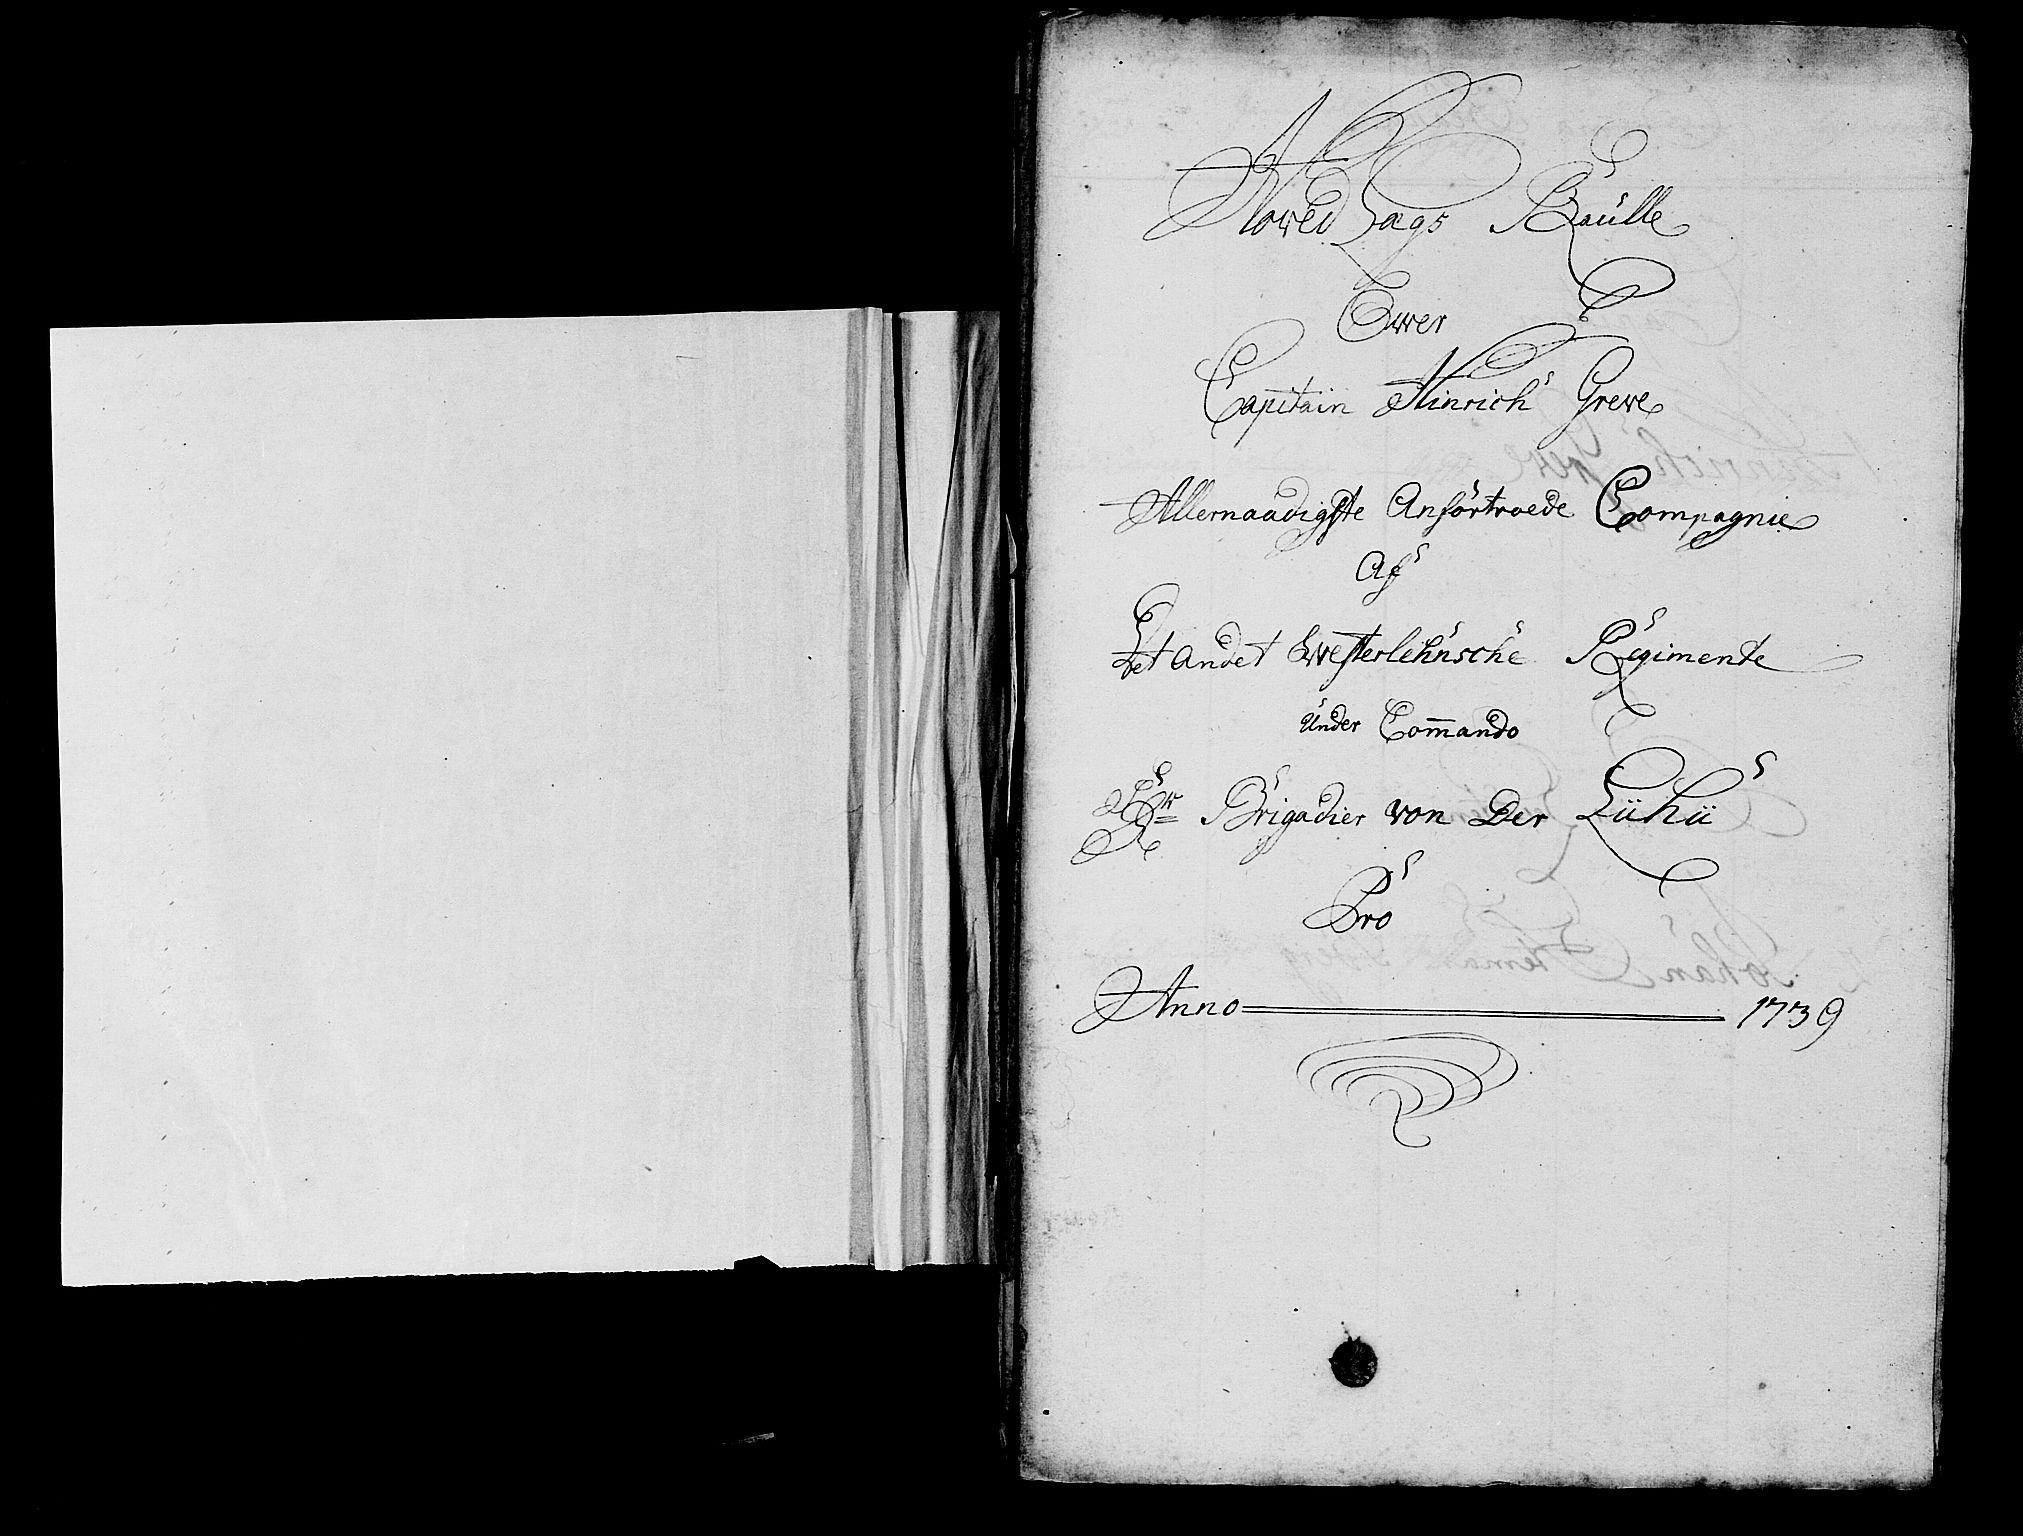 Hoved Lægs Raülle
Ower
Capitain Hinrich Greve
Allernaadigste Anfortroede Compagnie
Af
Det Andet Westerlehnsche Regimente
Under Com̄ando
Hr Brigadier von Der Lühü
Pro
Anno 1739